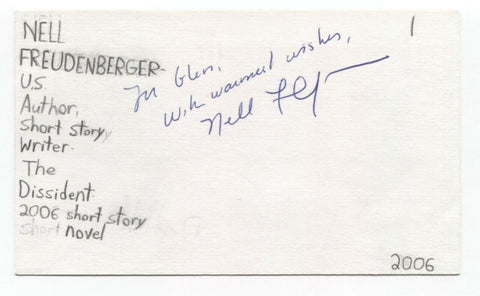 NELL
FREUDENBERGER
U.S.
Author,
Short story
Writer.
The
Dissident
2006 short story
short novel
1
To Glen,
With warmest wishes,
Nell
2006